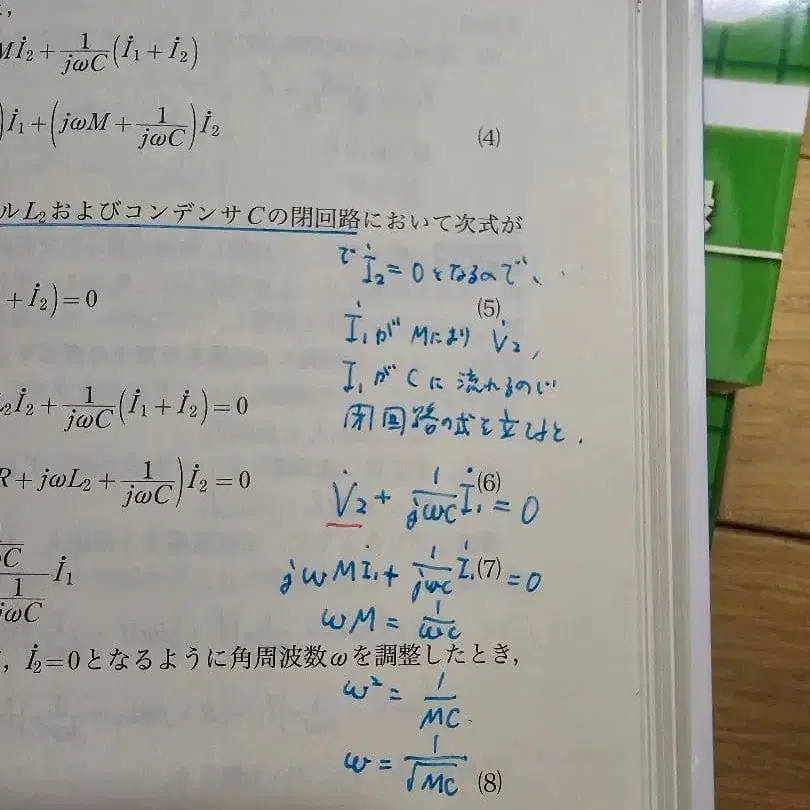 $M\dot{I}_2+\frac{1}{j\omega C}(\dot{I}_1+\dot{I}_2)$
$)\dot{I}_1+\left(j\omega M+\frac{1}{j\omega C}\right)\dot{I}_2$ (4)
ルL₂およびコンデンサCの閉回路において次式が
で $\dot{I}_2=0$ となるので、
$+\dot{I}_2)=0$ (5)
$\dot{I}_1$ が Mにより $\dot{V}_2$,
$\dot{I}_1$ が Cに流れるので
$L_2\dot{I}_2+\frac{1}{j\omega C}(\dot{I}_1+\dot{I}_2)=0$ (6)
閉回路の式を立てると.
$R+j\omega L_2+\frac{1}{j\omega C})\dot{I}_2=0$ (7)
$\dot{V}_2+\frac{1}{j\omega C}\dot{I}_1=0$
$j\omega M\dot{I}_1+\frac{1}{j\omega C}\dot{I}_1=0$
$\dot{I}_1$
$\omega M=\frac{1}{\omega C}$
, $\dot{I}_2=0$となるように角周波数ωを調整したとき,
$\omega^2=\frac{1}{MC}$
$\omega=\frac{1}{\sqrt{MC}}$ (8)